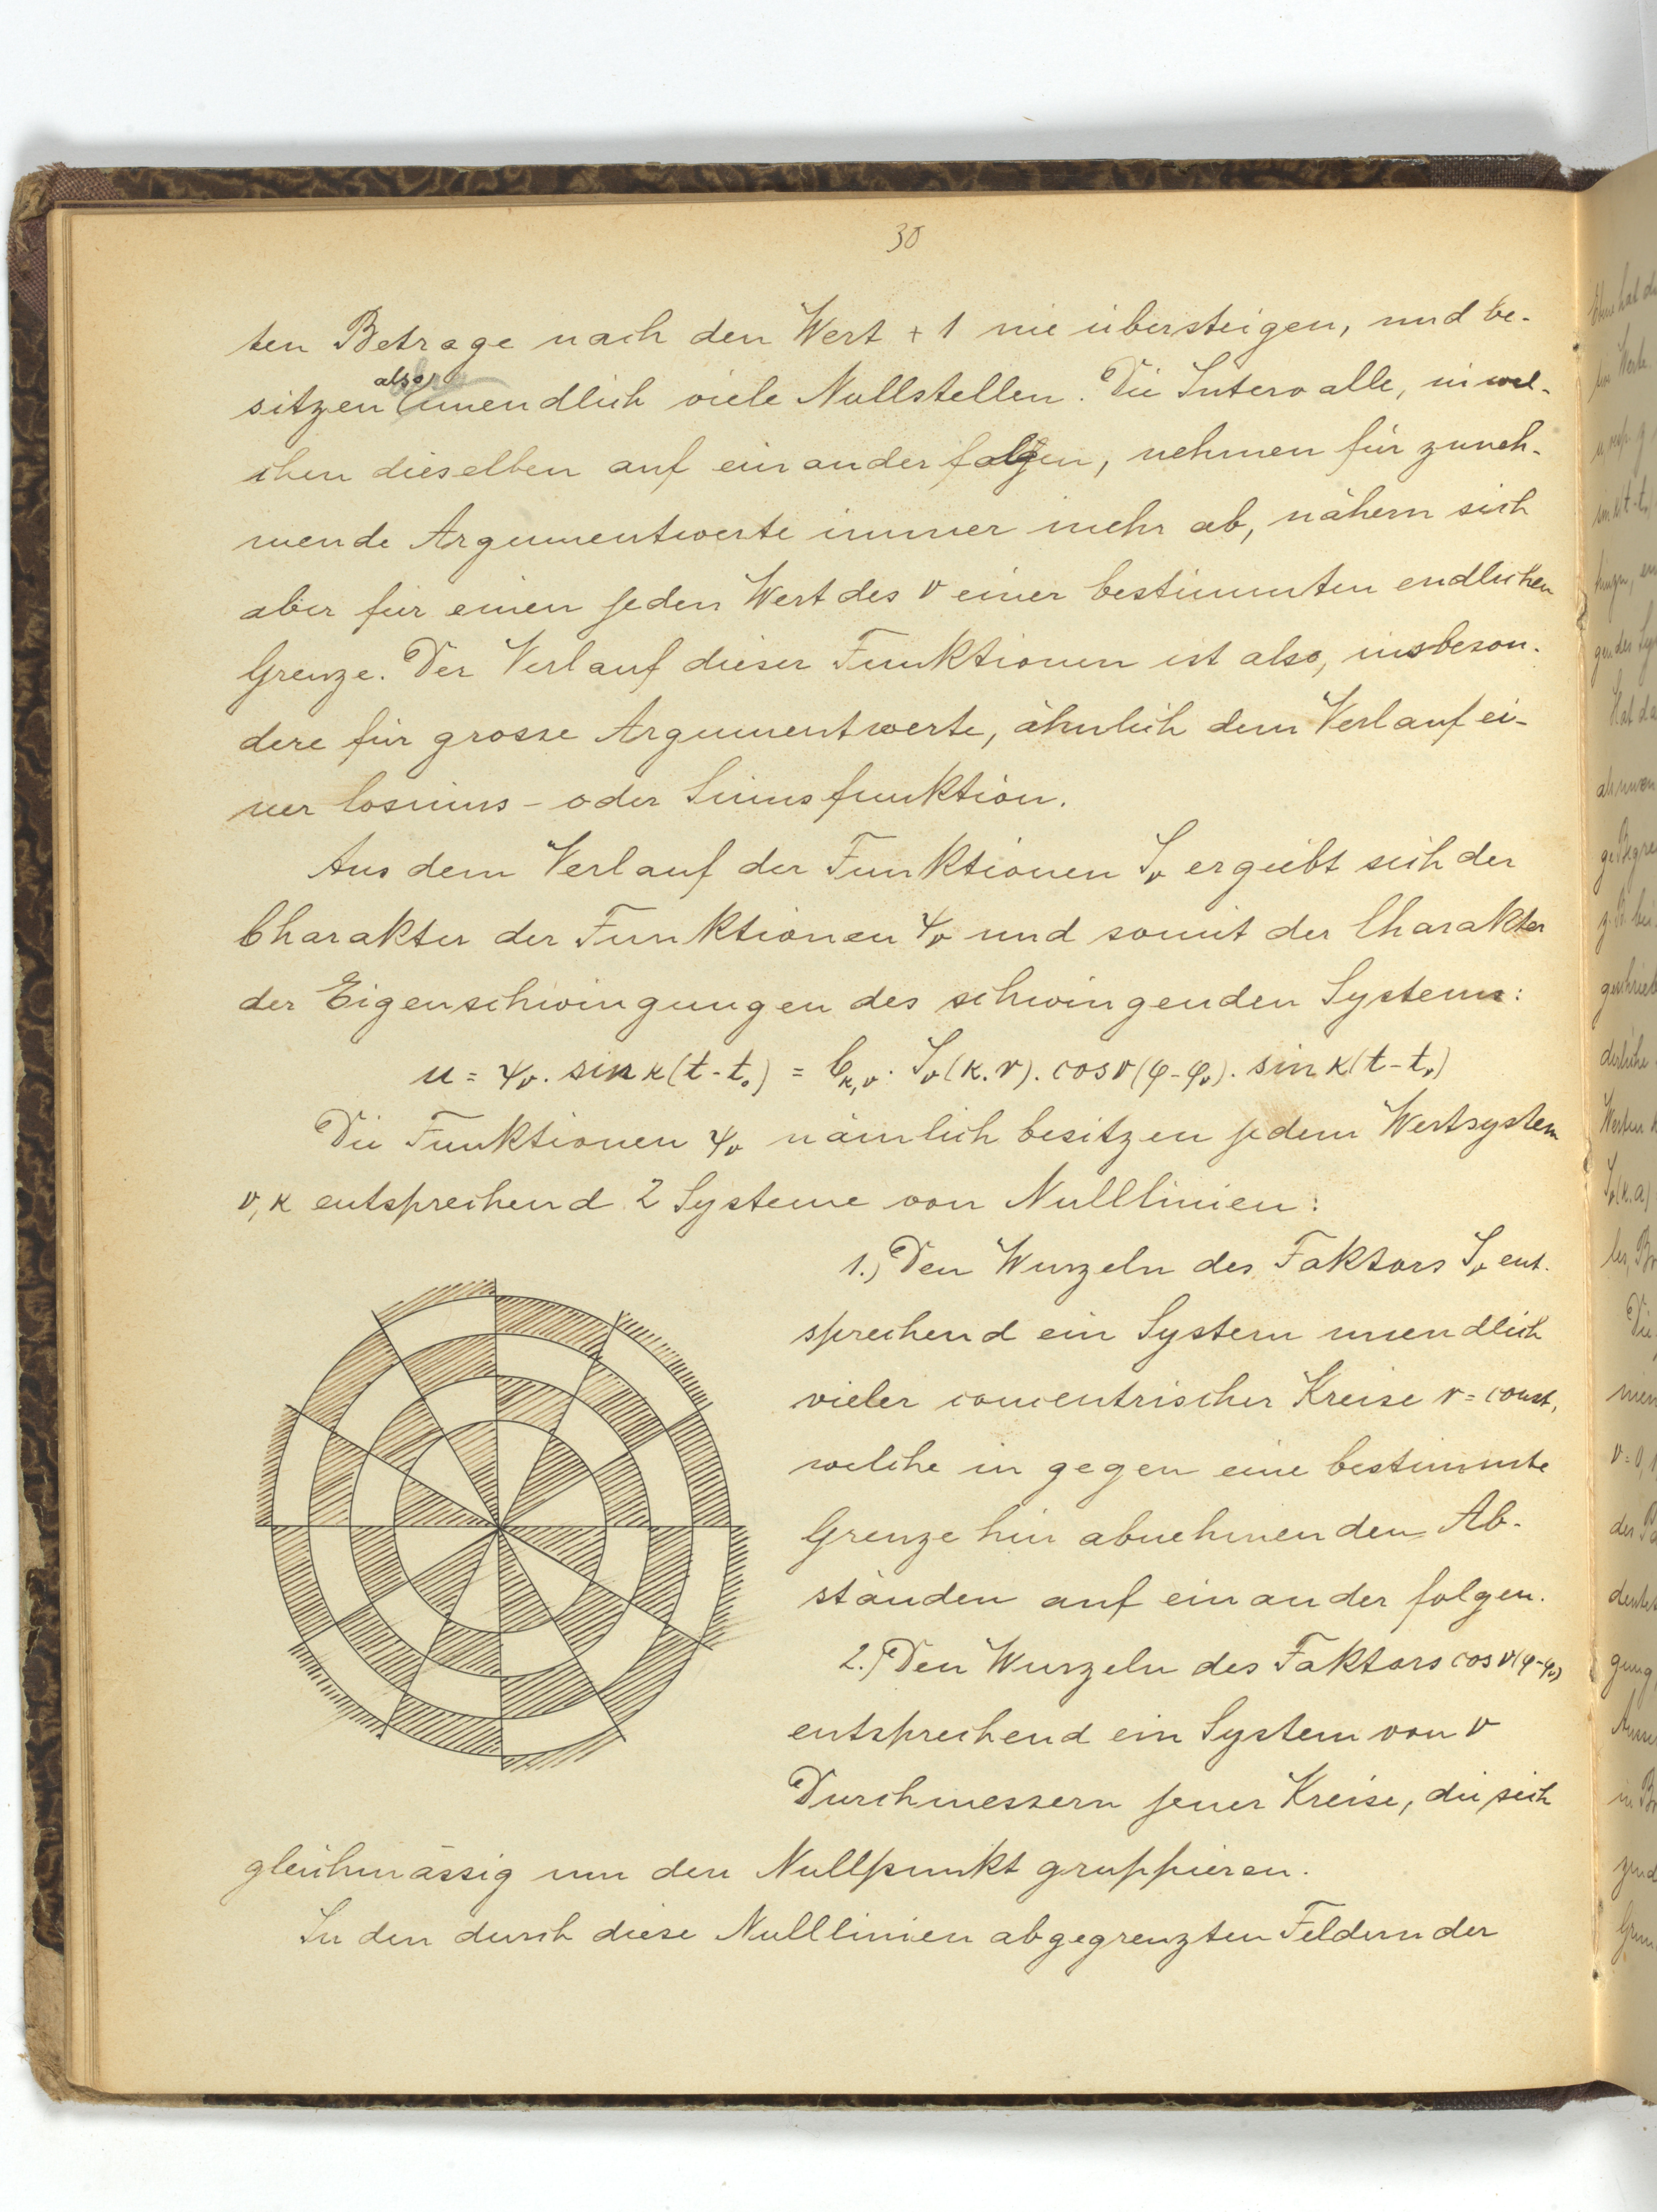 30
ten Betrage nach den Wert + 1 nie übersteigen, und be-
sitzen also unendlich viele Nullstellen. Die Intervalle, in wel-
chen dieselben auf einander folgen, nehmen für zuneh-
mende Argumentwerte immer mehr ab, nähern sich
aber für einen jeden Wert des ν einer bestimmten endlichen
Grenze. Der Verlauf dieser Funktionen ist also, insbeson-
dere für grosse Argumentwerte, ähnlich dem Verlauf ei-
ner Cosinus- oder Sinusfunktion.
Aus dem Verlauf der Funktionen J_ν ergiebt sich der
Charakter der Funktionen ψ_ν und somit der Charakter
der Eigenschwingungen des schwingenden Systems:
u = ψ_ν. sin κ(t-t_0) = C_κ,ν. J_ν(κ.r). cos ν(φ-φ_ν). sin κ(t-t_ν)
Die Funktionen ψ_ν nämlich besitzen jedem Wertsystem
ν, κ entsprechend 2 Systeme von Nulllinien:
1.) Den Wurzeln des Faktors J_ν ent-
sprechend ein System unendlich
vieler concentrischer Kreise r = const,
welche in gegen eine bestimmte
Grenze hin abnehmenden Ab-
ständen auf einander folgen.
2.) Den Wurzeln des Faktors cos ν(φ-φ_ν)
entsprechend ein System von ν
Durchmessern jener Kreise, die sich
gleichmässig um den Nullpunkt gruppieren.
In den durch diese Nulllinien abgegrenzten Feldern der